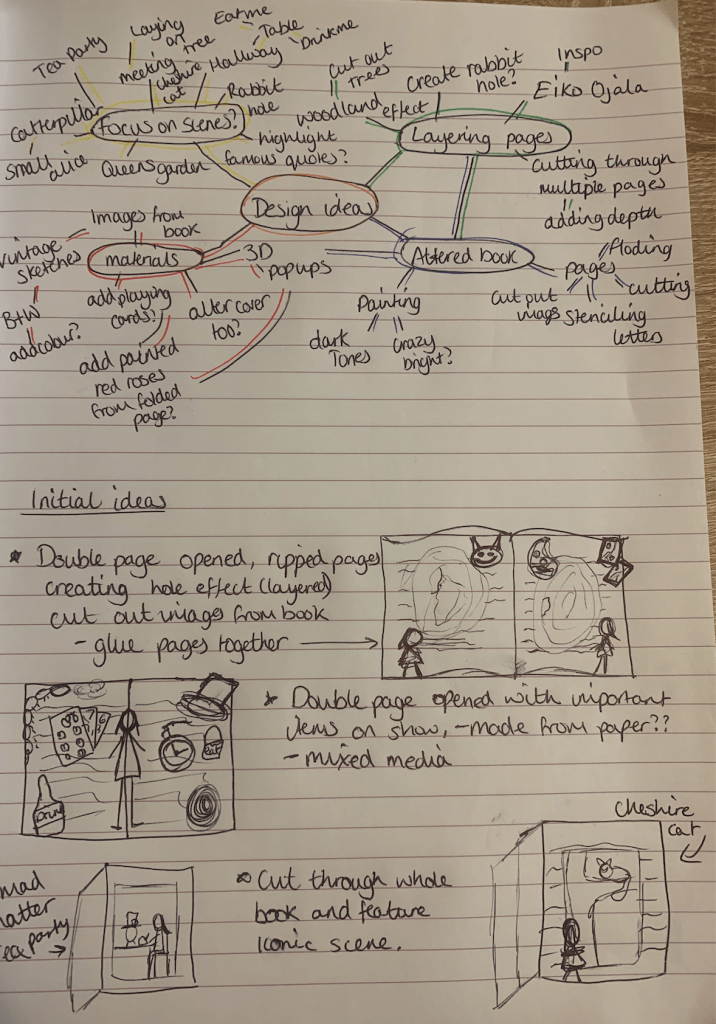 Tea party
Laying
on
tree
meeting
Cheshire
cat
Eat me
Table
Hallway
Drinkme
Rabbit
hole
Catterpillar
Focus on scenes?
small
alice
Queens garden
highlight
famous quotes?
Cut out
trees
woodland
effect
create rabbit
hole?
Inspo
Eiko Ojala
Layering pages
Cutting through
multiple pages
adding depth
Design ideas
Images from
book
vintage
sketches
materials
3D
popups
B+W
add colour?
add playing
cards?
alter cover
too?
add painted
red roses
from folded
page?
Altered book
Painting
dark
Tones
crazy
bright?
pages
floding
cutting
cut put
imags
stenciling
letters
Initial ideas
* Double page opened, ripped pages
creating hole effect (layered)
cut out images from book
- glue pages together
* Double page opened with important
items on show, - made from paper??
- mixed media
Drink
eat
Cheshire
cat
mad
hatter
tea party
* Cut through whole
book and feature
iconic scene.